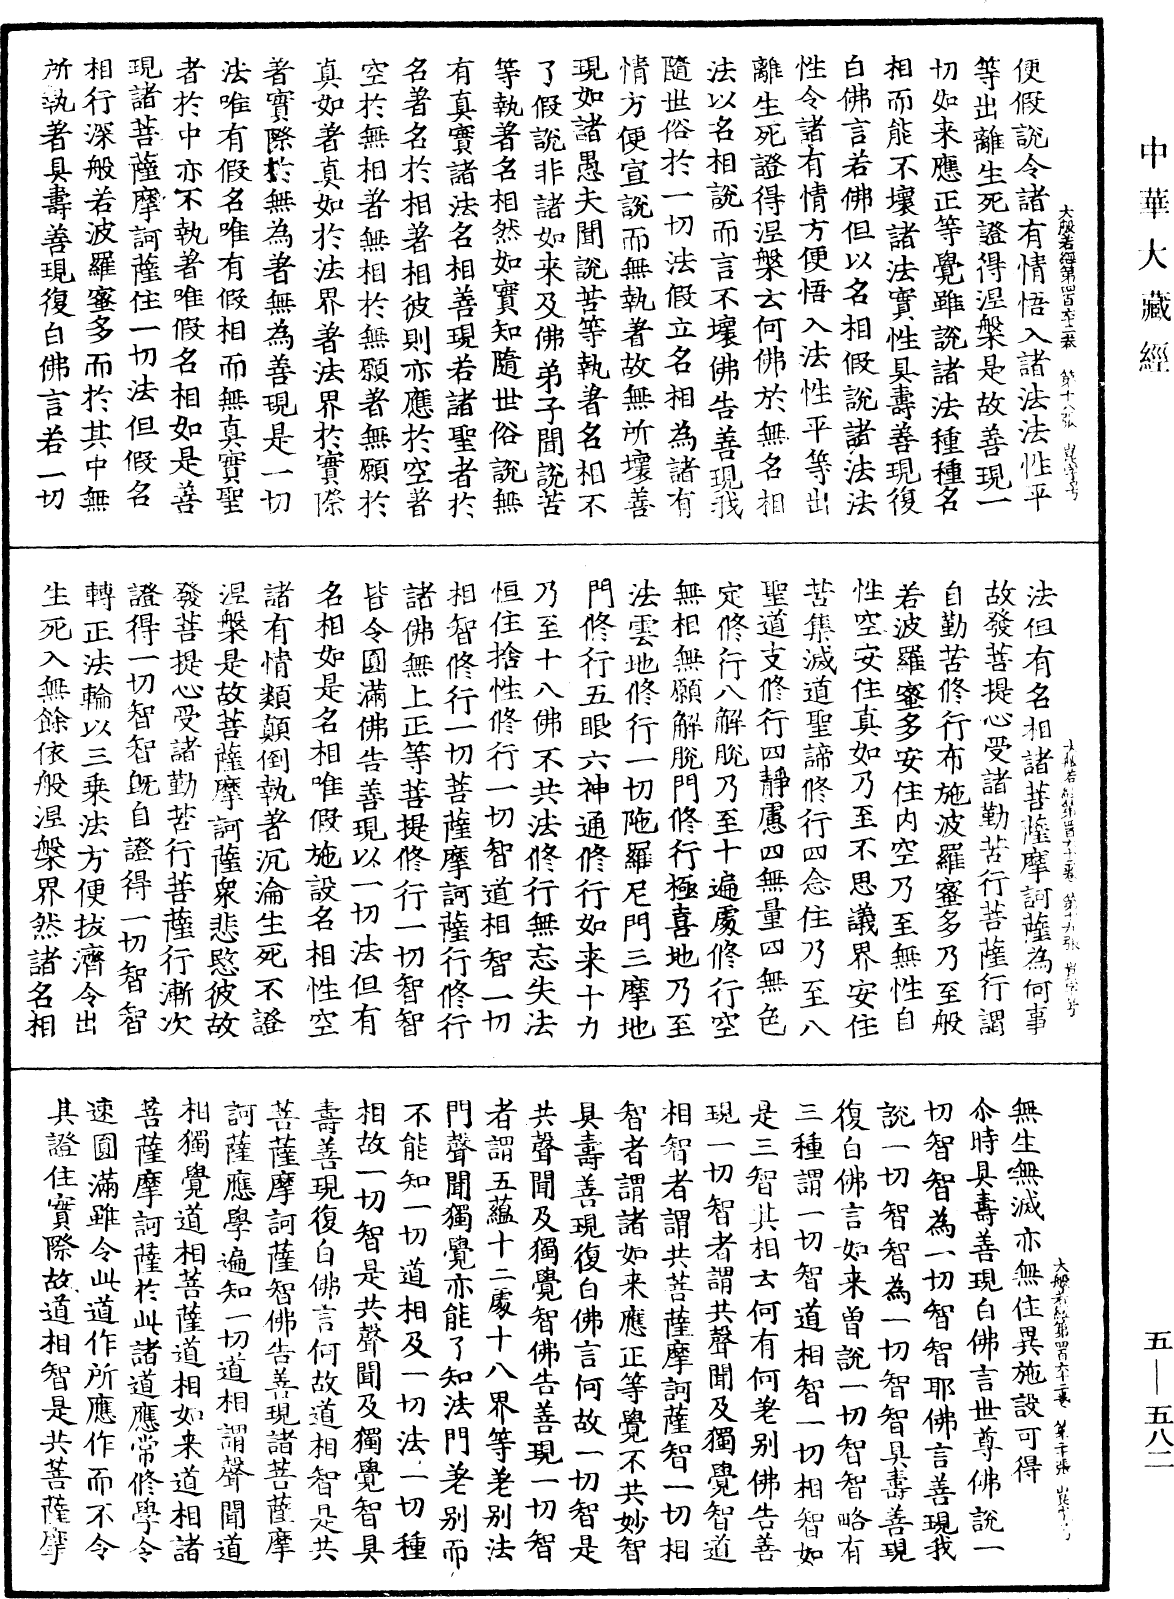 中華大藏經
便假說令諸有情悟入諸法法性平
等出離生死證得涅槃是故善現一
切如来應正等覺雖說諸法種種名
相而能不壞諸法實性具壽善現復
白佛言若佛但以名相假說諸法法
性令諸有情方便悟入法性平等出
離生死證得涅槃云何佛於無名相
法以名相說而言不壞佛告善現我
隨世俗於一切法假立名相為諸有
情方便宣說而無執著故無所壞善
現如諸愚夫聞說苦等執著名相不
了假說非諸如来及佛弟子聞說苦
等執著名相然如實知隨世俗說無
有真實諸法名相善現若諸聖者於
名著名於相著相彼則亦應於空著
空於無相著無相於無願著無願於
真如著真如於法界著法界於實際
著實際於無為著無為善現是一切
法唯有假名唯有假相而無真實聖
者於中亦不執著唯假名相如是善
現諸菩薩摩訶薩住一切法但假名
相行深般若波羅蜜多而於其中無
所執著具壽善現復白佛言若一切
大般若經第四百六十二卷　第十八張
法但有名相諸菩薩摩訶薩為何事
故發菩提心受諸勤苦行菩薩行謂
自勤苦修行布施波羅蜜多乃至般
若波羅蜜多安住內空乃至無性自
性空安住真如乃至不思議界安住
苦集滅道聖諦修行四念住乃至八
聖道支修行四靜慮四無量四無色
定修行八解脫乃至十遍處修行空
無相無願解脫門修行極喜地乃至
法雲地修行一切陁羅尼門三摩地
門修行五眼六神通修行如来十力
乃至十八佛不共法修行無忘失法
恒住捨性修行一切智道相智一切
相智修行一切菩薩摩訶薩行修行
諸佛無上正等菩提修行一切智智
皆令圓滿佛告善現以一切法但有
名相如是名相唯假施設名相性空
諸有情類顛倒執著沉淪生死不證
涅槃是故菩薩摩訶薩衆悲愍彼故
發菩提心受諸勤苦行菩薩行漸次
證得一切智智旣自證得一切智智
轉正法輪以三乗法方便拔濟令出
生死入無餘依般涅槃界然諸名相
大般若經第四百六十二卷　第十九張
無生無滅亦無住異施設可得
尒時具壽善現白佛言世尊佛說一
切智智為一切智智耶佛言善現我
說一切智智為一切智智具壽善現
復白佛言如来曽說一切智智略有
三種謂一切智道相智一切相智如
是三智其相云何有何差別佛告善
現一切智者謂共聲聞及獨覺智道
相智者謂共菩薩摩訶薩智一切相
智者謂諸如来應正等覺不共妙智
具壽善現復白佛言何故一切智是
共聲聞及獨覺智佛告善現一切智
者謂五蘊十二處十八界等差別法
門聲聞獨覺亦能了知法門差別而
不能知一切道相及一切法一切種
相故一切智是共聲聞及獨覺智具
壽善現復白佛言何故道相智是共
菩薩摩訶薩智佛告善現諸菩薩摩
訶薩應學遍知一切道相謂聲聞道
相獨覺道相菩薩道相如来道相諸
菩薩摩訶薩於此諸道應常修學令
速圓滿雖令此道作所應作而不令
其證住實際故道相智是共菩薩摩
大般若經第四百六十二卷　第二十張
五—五八二